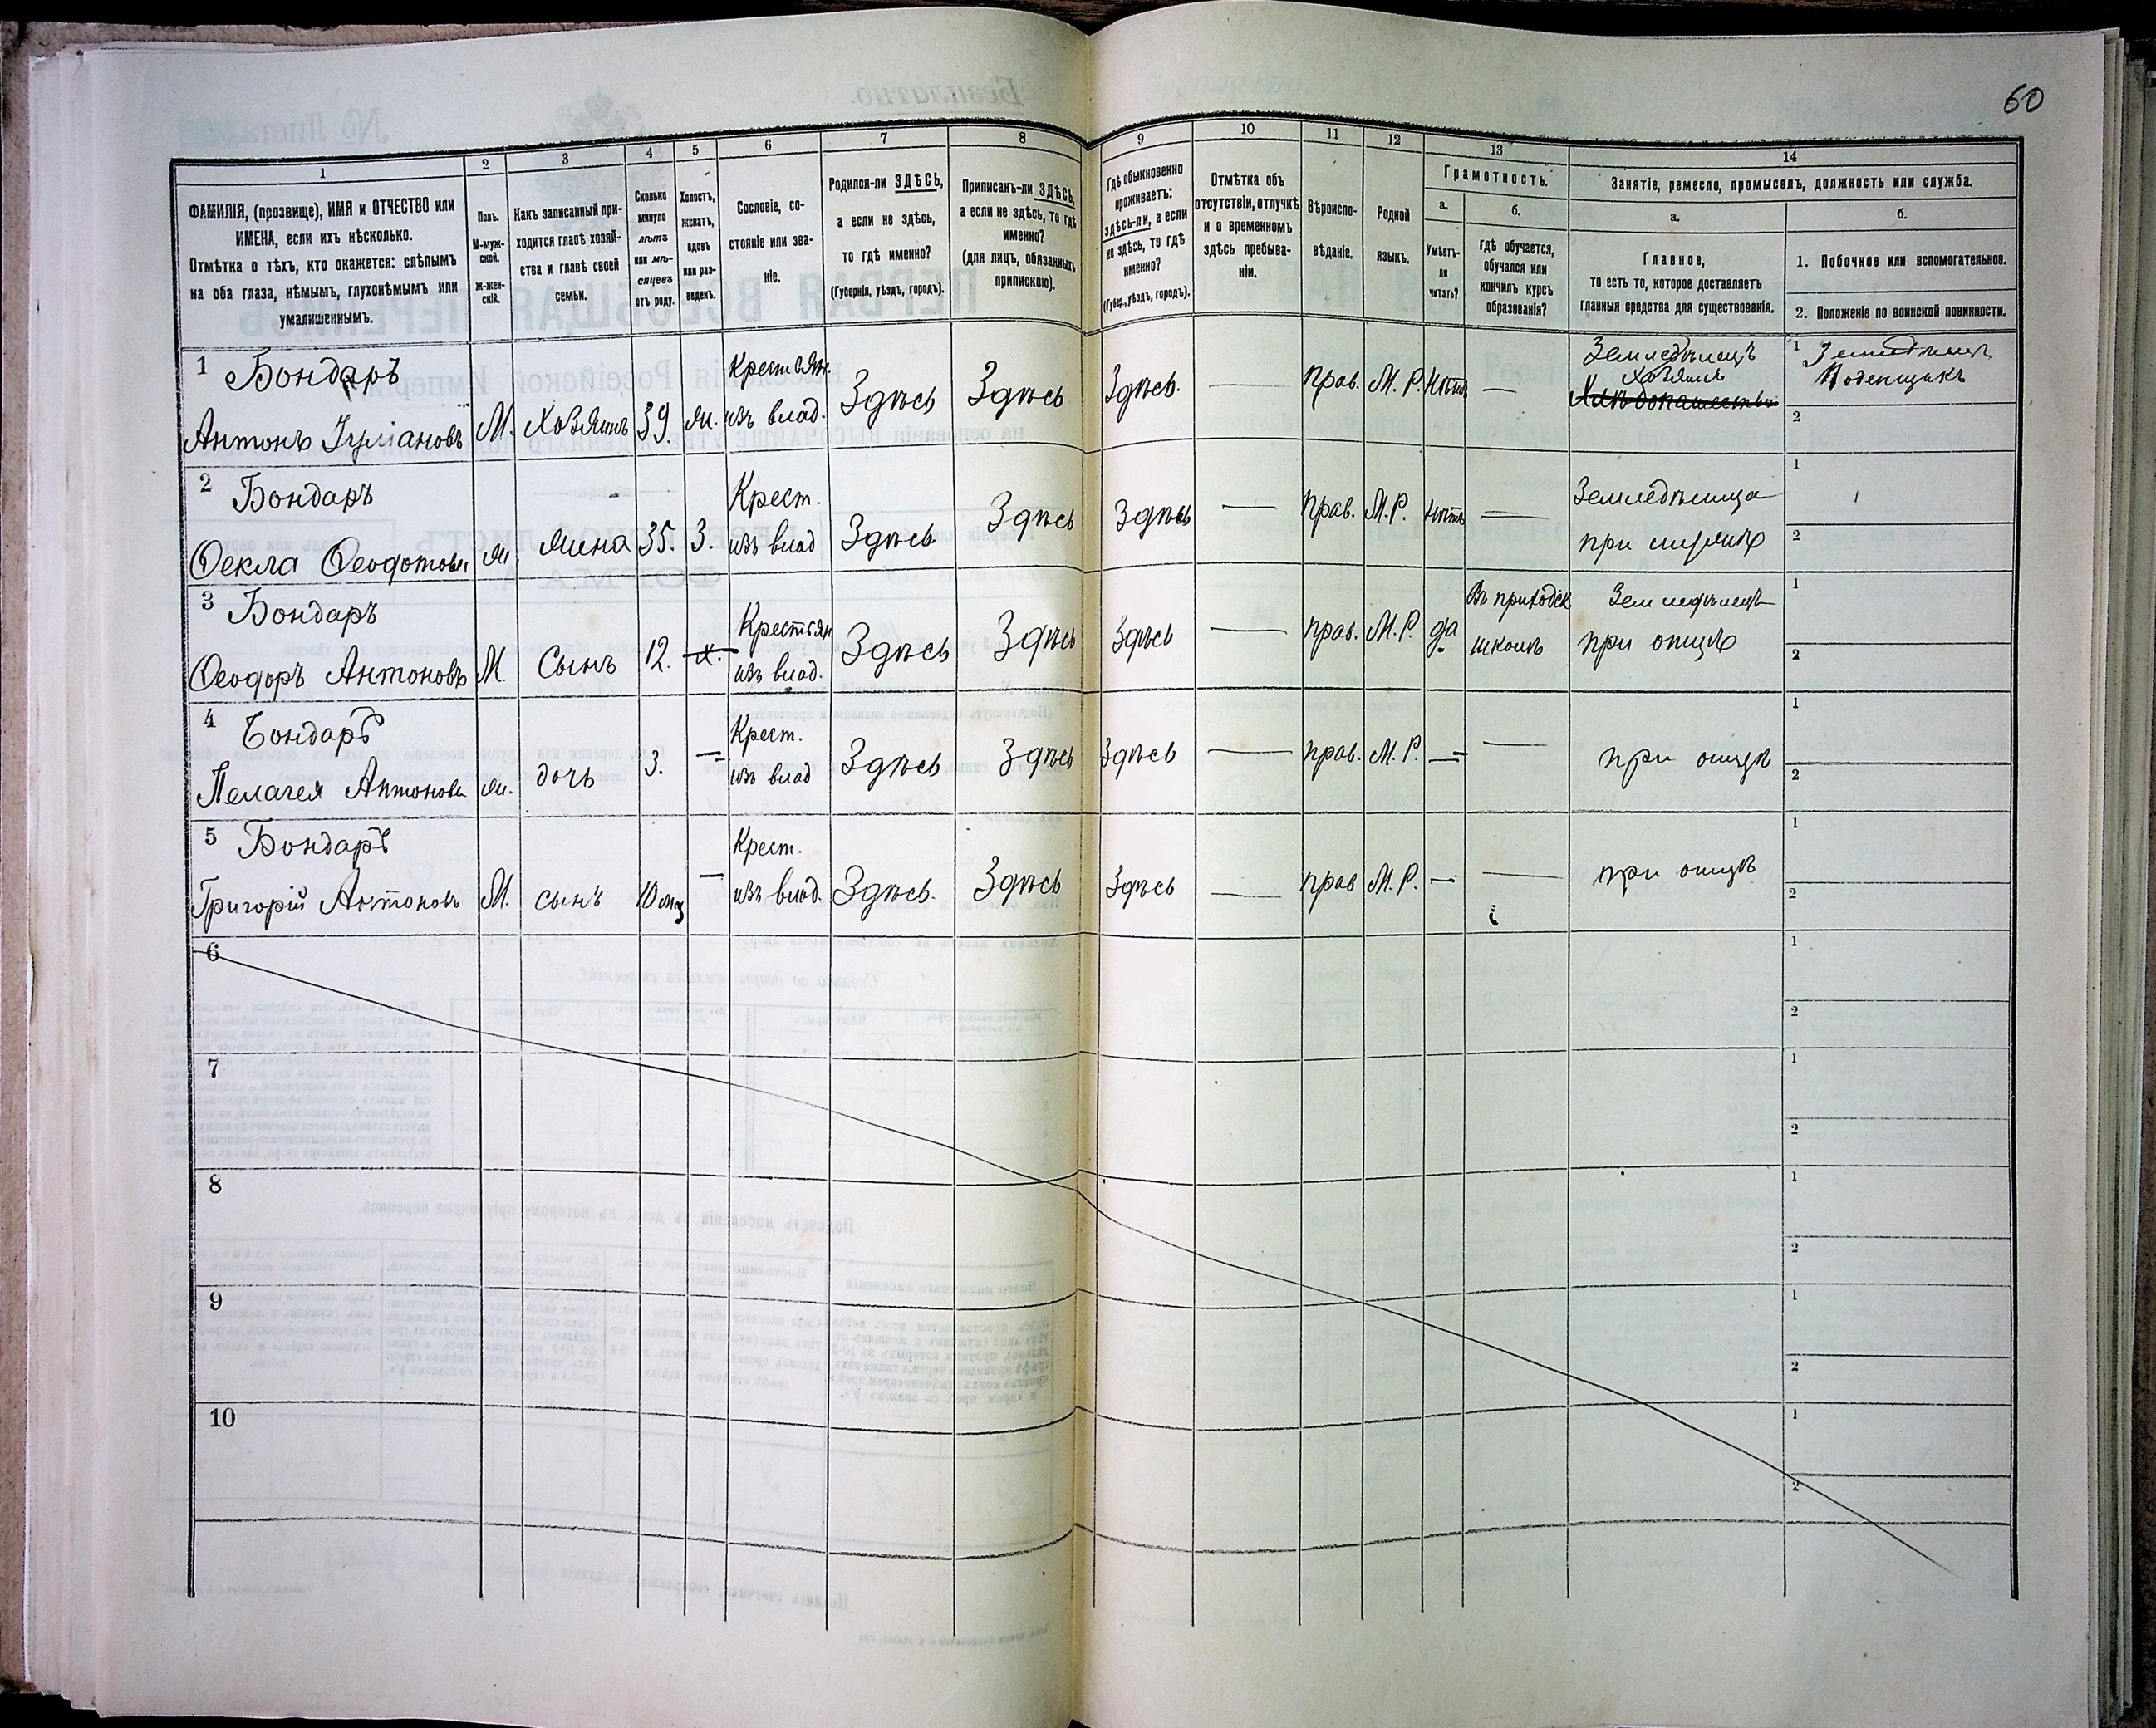 60
1 2 3 4 5 6 7 8 9 10 11 12 13 14
ФАМИЛІЯ, (прозвище), ИМЯ и ОТЧЕСТВО или
ИМЕНА, если ихъ нѣсколько.
Отмѣтка о тѣхъ, кто окажется: слѣпымъ
на оба глаза, нѣмымъ, глухонѣмымъ или
умалишеннымъ.
Полъ.
М-муж-
ской.
Ж-жен-
скій.
Какъ записанный при-
ходится главѣ хозяй-
ства и главѣ своей
семьи.
Сколько
минуло
лѣтъ
или мѣ-
сяцевъ
отъ роду.
Холостъ,
женатъ,
вдовъ
или раз-
веденъ.
Сословіе, со-
стояніе или зва-
ніе.
Родился-ли ЗДѢСЬ,
а если не здѣсь,
то гдѣ именно?
(Губернія, уѣздъ, городъ).
Приписанъ-ли ЗДѢСЬ,
а если не здѣсь, то гдѣ
именно?
(для лицъ, обязанныхъ
припискою).
Гдѣ обыкновенно
проживаетъ:
здѣсь-ли, а если
не здѣсь, то гдѣ
именно?
(Губер., уѣздъ, городъ).
Отмѣтка объ
отсутствіи, отлучкѣ
и о временномъ
здѣсь пребыва-
ніи.
Вѣроиспо-
вѣданіе.
Родной
языкъ.
Грамотность.
а.
Умѣетъ-
ли
читать?
б.
гдѣ обучается,
обучался или
кончилъ курсъ
образованія?
Занятіе, ремесло, промыселъ, должность или служба.
а.
Главное,
то есть то, которое доставляетъ
главныя средства для существованія.
б.
1. Побочное или вспомогательное.
2. Положеніе по воинской повинности.
1 Бондаръ
Антонъ М. Хозяинъ 39. ж. Крестьян. изъ влад. Здѣсь Здѣсь Здѣсь. — прав. М. Р. Нѣтъ — Земледѣлецъ
Хозяинъ
1 Земледѣлецъ
Поденщикъ
2
2 Бондаръ
Ѳекла Ѳеодотова ж. жена 35. З. Крест. изъ влад Здѣсь. Здѣсь Здѣсь — прав. М.Р. нѣтъ — Земледѣлица
при мужѣ
1
2
3 Бондаръ
Ѳеодоръ Антоновъ М. Сынъ 12. х. Крестьян изъ влад. Здѣсь Здѣсь Здѣсь — прав. М.Р. да Въ приходск школѣ Земледѣлецъ
при отцѣ
1
2
4 Бондаръ
Пелагея Антонова ж. дочь 3. — Крест. изъ влад Здѣсь Здѣсь Здѣсь — прав. М.Р. — — при отцѣ
1
2
5 Бондаръ
Григорій Антоновъ М. сынъ 10 мц — Крест. изъ влад. Здѣсь. Здѣсь Здѣсь — прав М.Р. — — при отцѣ
1
2
6
1
2
7
1
2
8
1
2
9
1
2
10
1
2